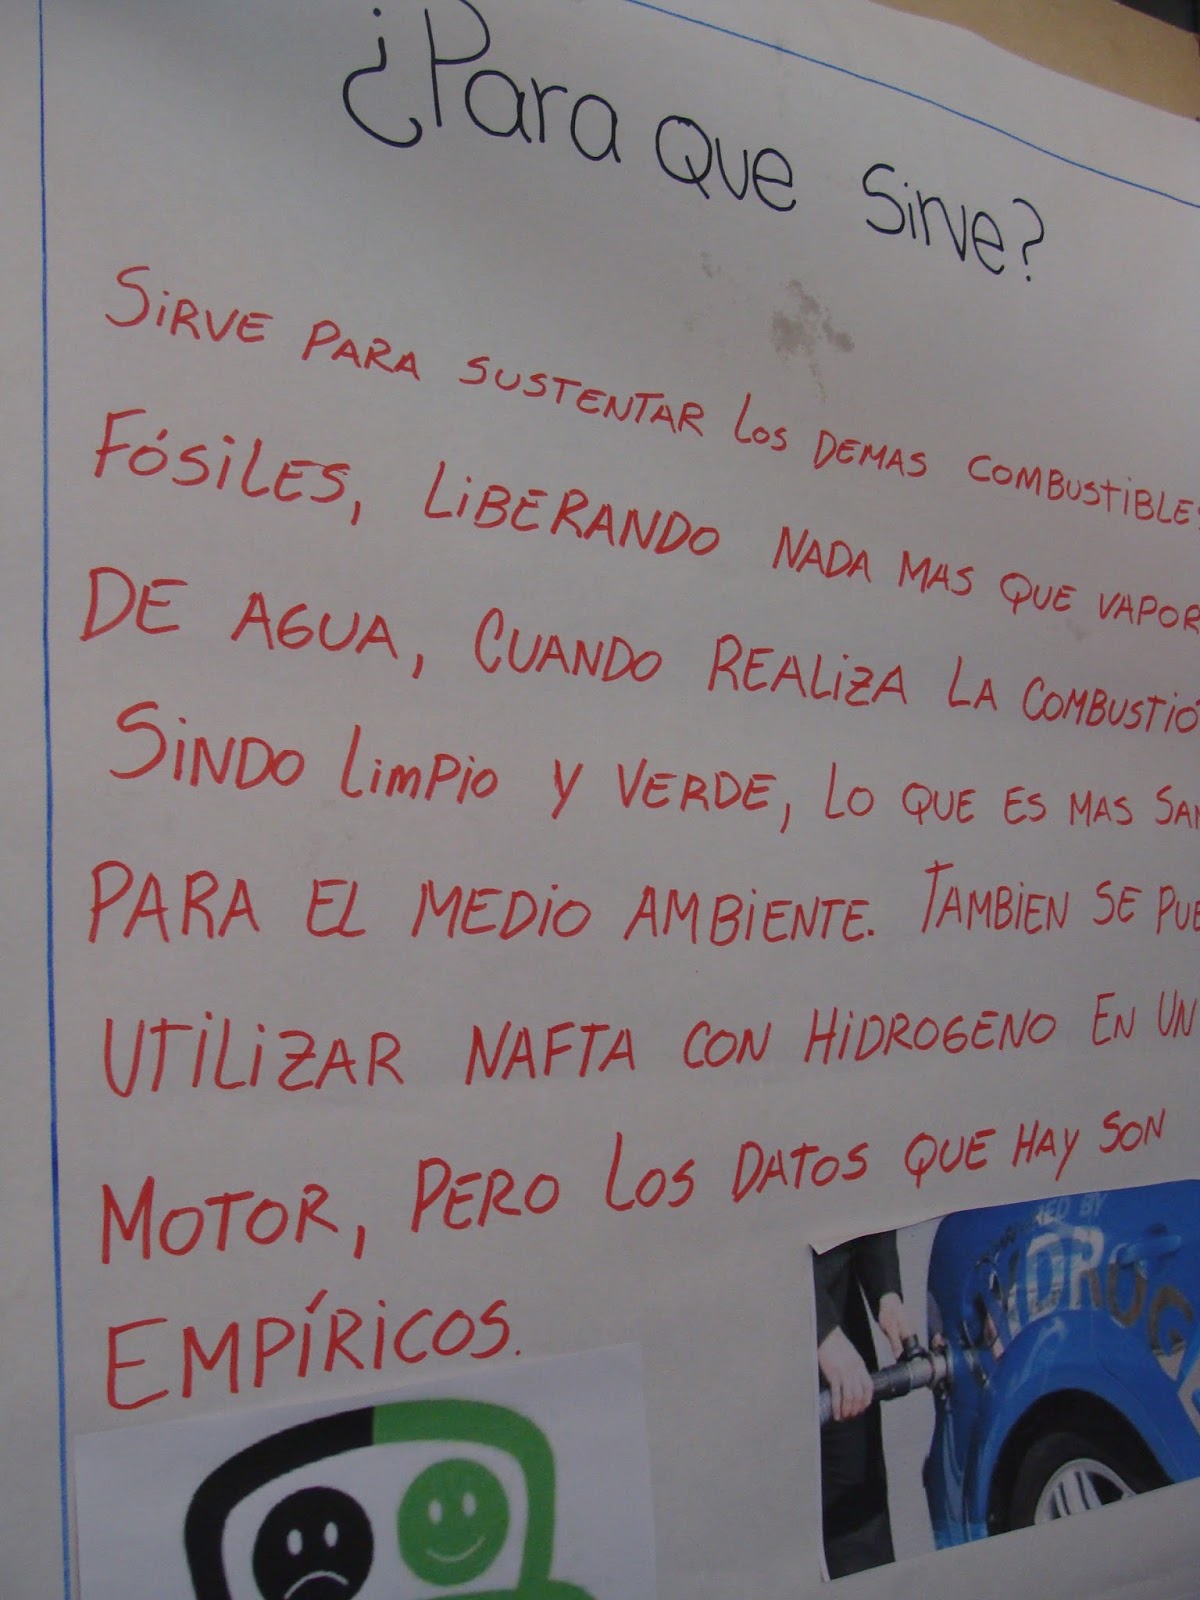 ¿Para QUE Sirve?
SIRVE PARA SUSTENTAR LOS DEMAS COMBUSTIBLES
FÓSILES, LIBERANDO NADA MAS QUE VAPOR
DE AGUA, CUANDO REALIZA LA COMBUSTIÓ
SINDO LIMPIO Y VERDE, LO QUE ES MAS SAN
PARA EL MEDIO AMBIENTE. TAMBIEN SE PUE
UTILIZAR NAFTA CON HIDROGENO EN UN
MOTOR, PERO LOS DATOS QUE HAY SON
EMPÍRICOS.
POWERED BY
HYDROG